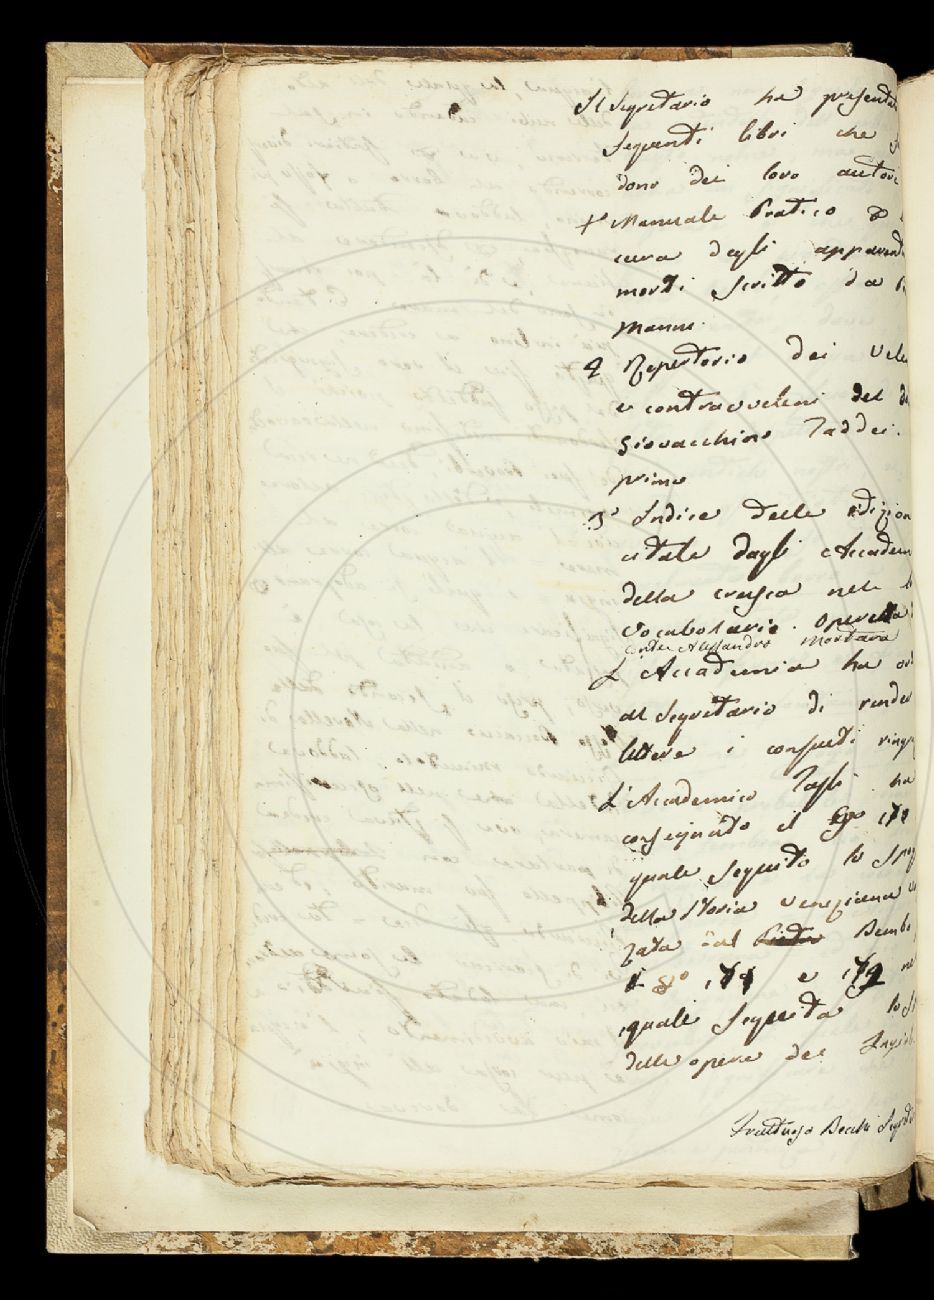 Il Segretario ha presentat
seguenti libri che
dono dei loro autori
1° Manuale Pratico
cura degli apparent
morti scritto da
Manni
2 Repertorio dei vele
e contravveleni del
Giovacchino Taddei.
primo
3° Indice delle edizion
citate dagli Accadem
della crusca nel
Vocabolario. Operetta
Conte Alessandro Mortara
L'Accademia ha
al Segretario di render
lettere i consueti ringr
L'Accademico Zaffi ha
consegnato il
quale seguito lo spog
della storia veneziana
zata dal Pietro Bembo
e
quale seguita lo s
delle opere dei
Fruttuoso Becchi Segret